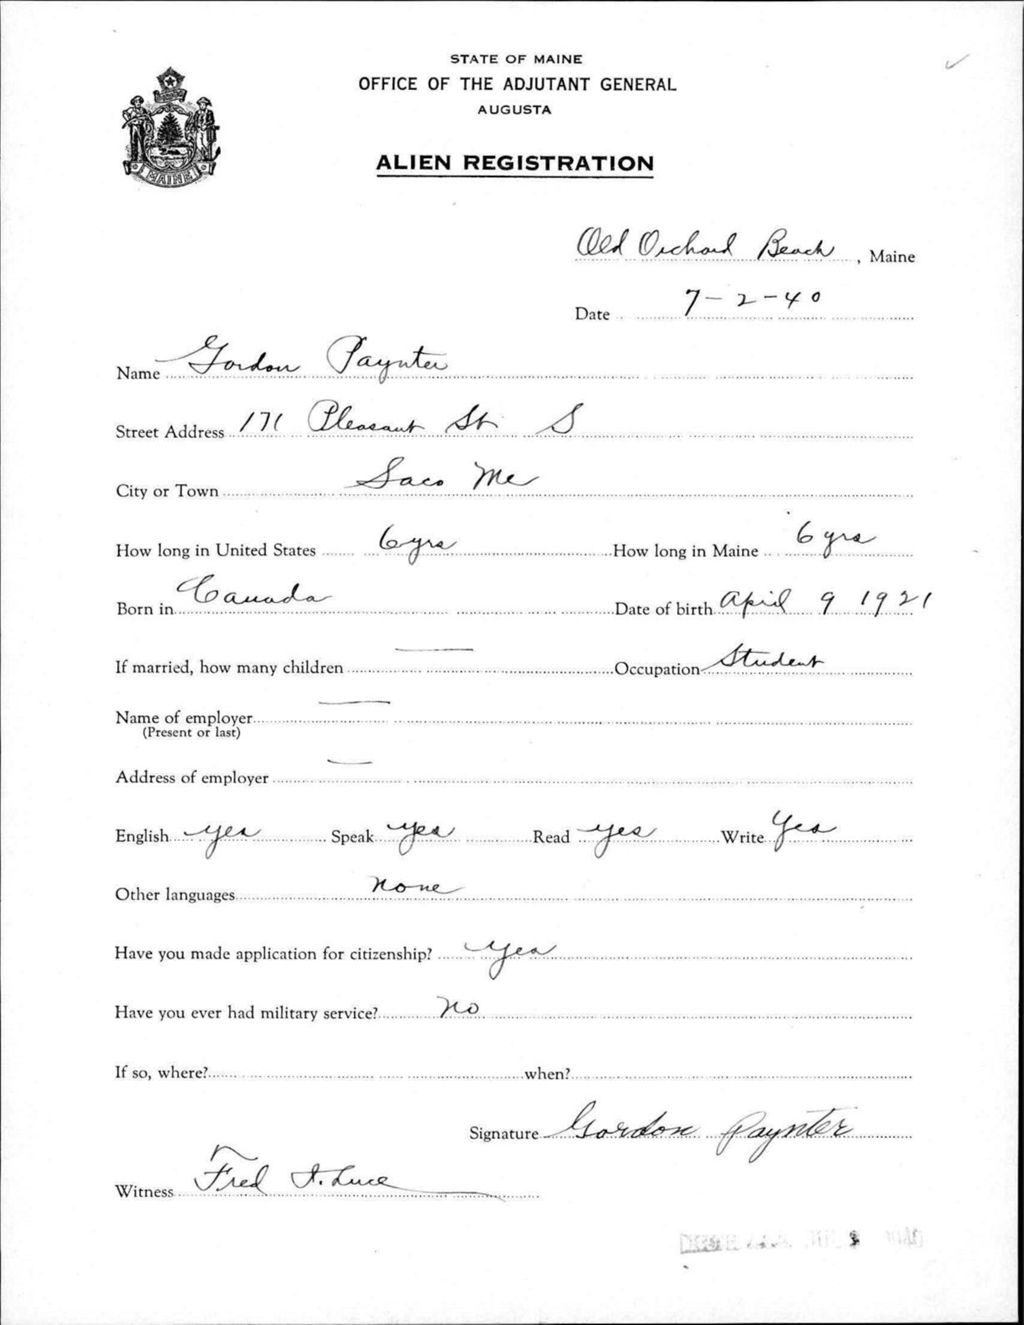 STATE OF MAINE
OFFICE OF THE ADJUTANT GENERAL
AUGUSTA
ALIEN REGISTRATION
MAINE
Old Orchard Beach, Maine
Date 7-2-40
Name Gordon Paynter
Street Address 171 Pleasant St. S
City or Town Saco Me
How long in United States 6 yrs How long in Maine 6 yrs
Born in Canada Date of birth April 9 1921
If married, how many children — Occupation Student
Name of employer —
(Present or last)
Address of employer —
English yes Speak yes Read yes Write Yes
Other languages none
Have you made application for citizenship? yes
Have you ever had military service? no
If so, where? when?
Signature Gordon Paynter
Witness Fred I. Luce